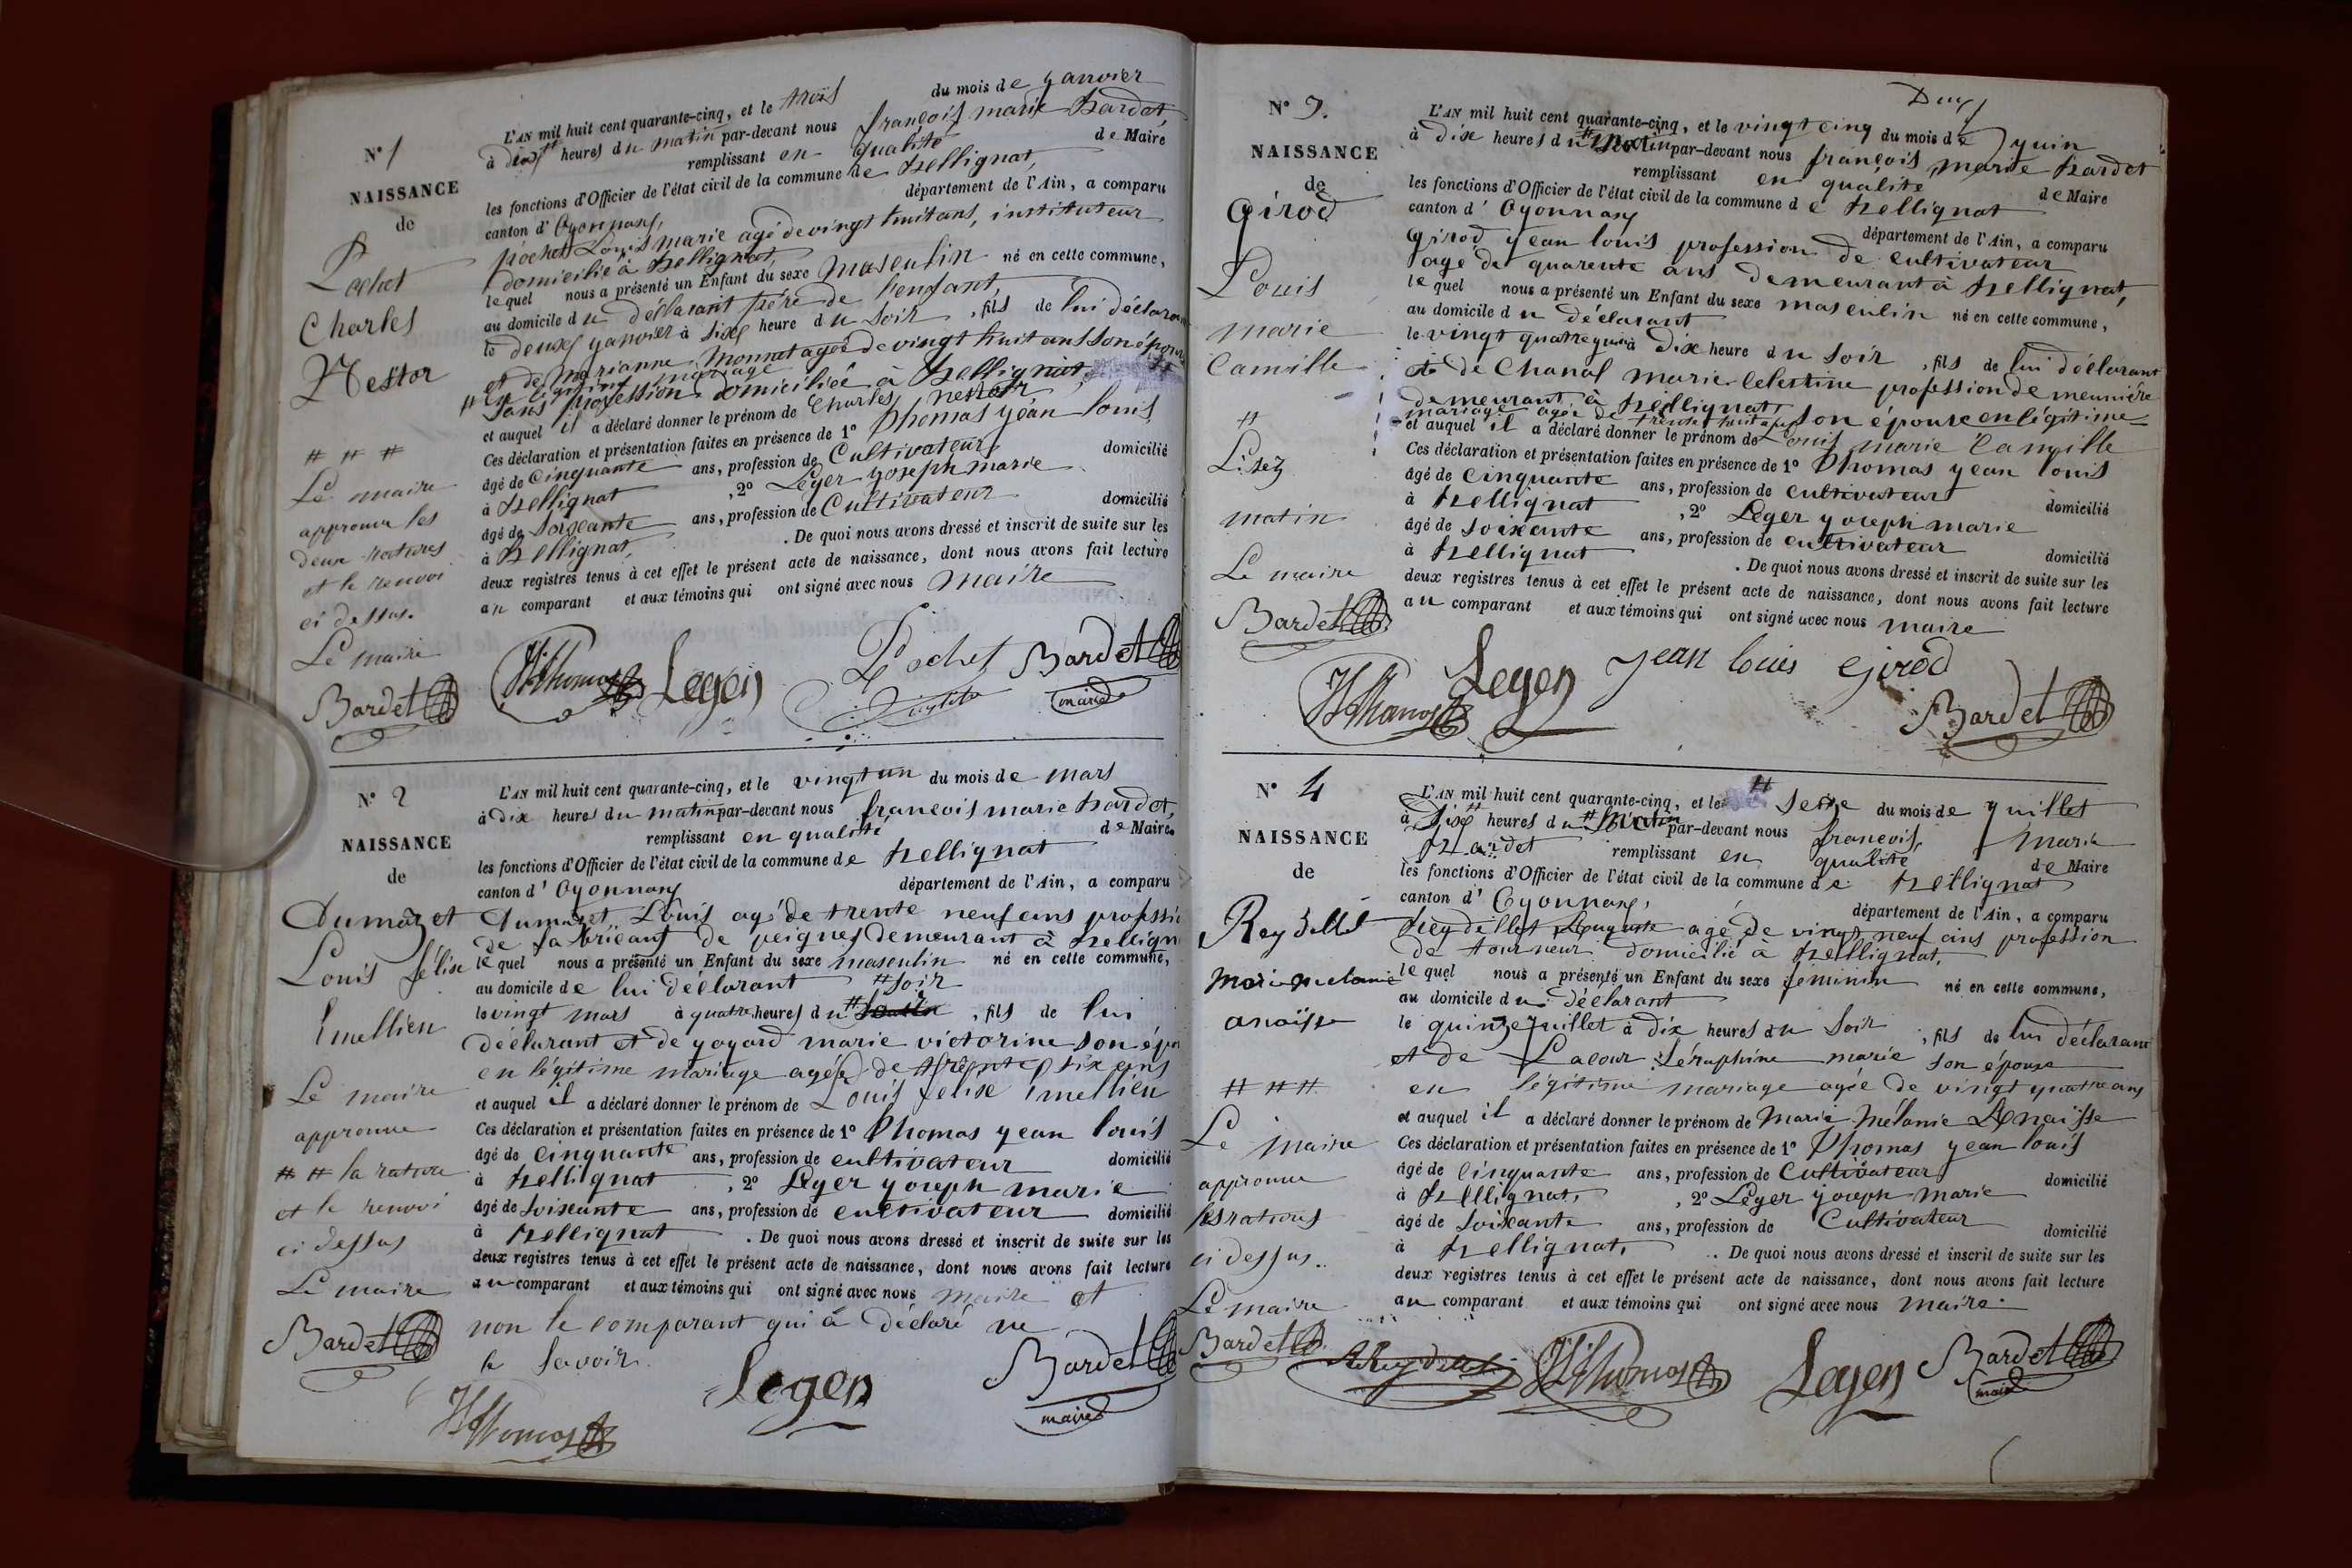 N° 1
NAISSANCE
de
Pochet
Charles
Nestor
# # #
Le maire
approuve les
deux ratures
et le renvoi
ci dessus.
Le maire
Bardet
L'AN mil huit cent quarante-cinq, et le trois du mois de yanvier
à heures du matin par-devant nous françois marie Bardet,
remplissant en qualité de Maire
les fonctions d'Officier de l'état civil de la commune de Bellignat,
canton d'Oyonnax, département de l'Ain, a comparu
pochet Louis marie agé de vingt huit ans, instituteur
domicilié à Bellignat,
lequel nous a présenté un Enfant du sexe masculin né en cette commune,
au domicile du déclarant père de l'enfant,
le deux yanvier à six heure du soir, fils de lui déclarant
et de marianne monnet agée de vingt huit ans son épouse
# en légitime mariage
sans profession domiciliée à Bellignat,
et auquel il a déclaré donner le prénom de Charles, nestor
Ces déclaration et présentation faites en présence de 1° Thomas yean louis
âgé de cinquante ans, profession de Cultivateur domicilié
à Bellignat, 2° Léger yoseph marie
âgé de soixante ans, profession de Cultivateur domicilié
à Bellignat, . De quoi nous avons dressé et inscrit de suite sur les
deux registres tenus à cet effet le présent acte de naissance, dont nous avons fait lecture
au comparant et aux témoins qui ont signé avec nous maire
Thomas Leger Pochet Bardet
maire
N° 2
NAISSANCE
de
Dumazet
Louis félise
Emellien
Le maire
approuve
# # la rature
et le renvoi
ci dessus
Le maire
Bardet
L'AN mil huit cent quarante-cinq, et le vingt un du mois de mars
à dix heures du matin par-devant nous françois marie Bardet,
remplissant en qualité de Maire
les fonctions d'Officier de l'état civil de la commune de Bellignat
canton d'Oyonnax département de l'Ain, a comparu
dumazet Louis agé de trente neuf ans professio
de fabricant de peignes demeurant à Bellign
lequel nous a présenté un Enfant du sexe masculin né en cette commune,
au domicile de lui déclarant # soir
le vingt mars à quatre heures du # , fils de lui
déclarant et de yoyard marie victorine son épou
en légitime mariage agée de trente six ans
et auquel il a déclaré donner le prénom de Louis félise Emellien
Ces déclaration et présentation faites en présence de 1° Thomas yean louis
âgé de cinquante ans, profession de cultivateur domicilié
à Bellignat, 2° Leger yoseph marie
âgé de soixante ans, profession de cultivateur domicilié
à Bellignat . De quoi nous avons dressé et inscrit de suite sur les
deux registres tenus à cet effet le présent acte de naissance, dont nous avons fait lecture
au comparant et aux témoins qui ont signé avec nous maire et
non le comparant qui a déclaré ne
le savoir.
Thomas Leger Bardet
maire
N° 3.
NAISSANCE
de
Girod
Louis
marie
Camille
#
Lisez
matin
Le maire
Bardet
L'AN mil huit cent quarante-cinq, et le vingt cinq du mois de yuin
à dix heures du # matin par-devant nous françois marie Bardet
remplissant en qualité de Maire
les fonctions d'Officier de l'état civil de la commune de Bellignat
canton d'Oyonnax département de l'Ain, a comparu
Girod yean louis profession de cultivateur
agé de quarente ans demeurant à Bellignat,
lequel nous a présenté un Enfant du sexe masculin né en cette commune,
au domicile du déclarant
le vingt quatre yuin à dix heure du soir, fils de lui déclarant
et de Chanal marie Celestine profession de meunière
demeurant à Bellignat, son épouse en légitime
mariage agée de trente huit ans
et auquel il a déclaré donner le prénom de Louis marie Camille
Ces déclaration et présentation faites en présence de 1° Thomas yean louis
âgé de cinquante ans, profession de cultivateur domicilié
à Bellignat, 2° Leger yoseph marie
âgé de soixante ans, profession de cultivateur domicilié
à Bellignat . De quoi nous avons dressé et inscrit de suite sur les
deux registres tenus à cet effet le présent acte de naissance, dont nous avons fait lecture
au comparant et aux témoins qui ont signé avec nous maire
Thomas Leger yean louis girod Bardet
N° 4
NAISSANCE
de
Reydellet
Marie melanie
anaïsse
# # #
Le maire
approuve
les ratures
ci dessus.
Le maire
Bardet
L'AN mil huit cent quarante-cinq, et le # seize du mois de yuillet
à dix heures du # par-devant nous françois, marie
Bardet remplissant en qualité de Maire
les fonctions d'Officier de l'état civil de la commune de Bellignat
canton d'Oyonnax, département de l'Ain, a comparu
Reydellet Auguste agé de vingt neuf ans profession
de tourneur domicilié à Bellignat,
lequel nous a présenté un Enfant du sexe feminin né en cette commune,
au domicile du déclarant
le quinze yuillet à dix heures du soir, fils de lui déclarant
et de Lacour Séraphine marie son épouse
en légitime mariage agée de vingt quatre ans
et auquel il a déclaré donner le prénom de marie Mélanie Anaïsse
Ces déclaration et présentation faites en présence de 1° Thomas yean louis
âgé de cinquante ans, profession de Cultivateur domicilié
à Bellignat, 2° Léger yoseph marie
âgé de soixante ans, profession de Cultivateur domicilié
à Bellignat, . De quoi nous avons dressé et inscrit de suite sur les
deux registres tenus à cet effet le présent acte de naissance, dont nous avons fait lecture
au comparant et aux témoins qui ont signé avec nous maire.
A Reydellet Thomas Leger Bardet
maire